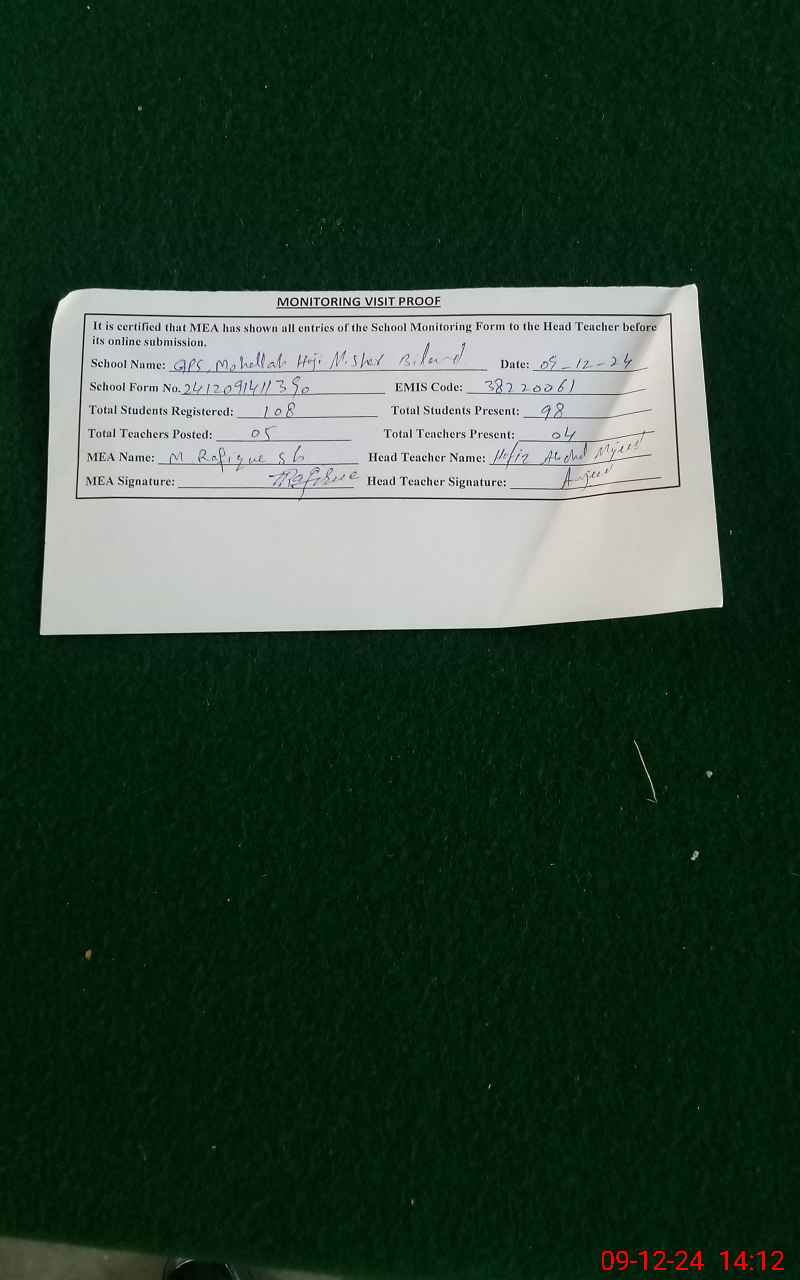 MONITORING VISIT PROOF
It is certified that MEA has shown all entries of the School Monitoring Form to the Head Teacher before
its online submission.
School Name: GPS, Mohellah Haji M. Sher Date: 09-12-24
School Form No. 2412091411390 EMIS Code: 38220061
Total Students Registered: 108 Total Students Present: 98
Total Teachers Posted: 05 Total Teachers Present: 04
MEA Name: M Rafique sb Head Teacher Name: Hafiz
MEA Signature: Rafique Head Teacher Signature:
09-12-24 14:12